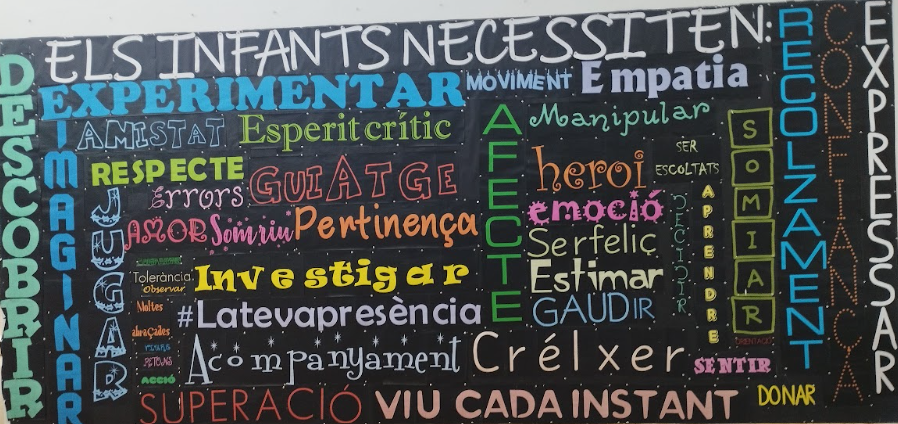 ELS INFANTS NECESSITEN:
DESCOBRIR
EXPERIMENTAR
MOVIMENT
Empatia
IMAGINAR
AMISTAT
Esperit crític
AFECTE
Manipular
RESPECTE
Errors
GUIATGE
heroi
SER
ESCOLTATS
SOMIAR
JUGAR
AMOR
Somriu
Pertinença
emoció
DECIDIR
APRENDRE
Serfelic
Tolerància
Observar
Investigar
Estimar
Moltes
abraçades
#Latevapresència
GAUDIR
ORIENTACIÓ
PETONS
ACCIÓ
Acompanyament
Crélxer
SENTIR
SUPERACIÓ
VIU CADA INSTANT
DONAR
RECOLZAMENT
CONFIANÇA
EXPRESSAR